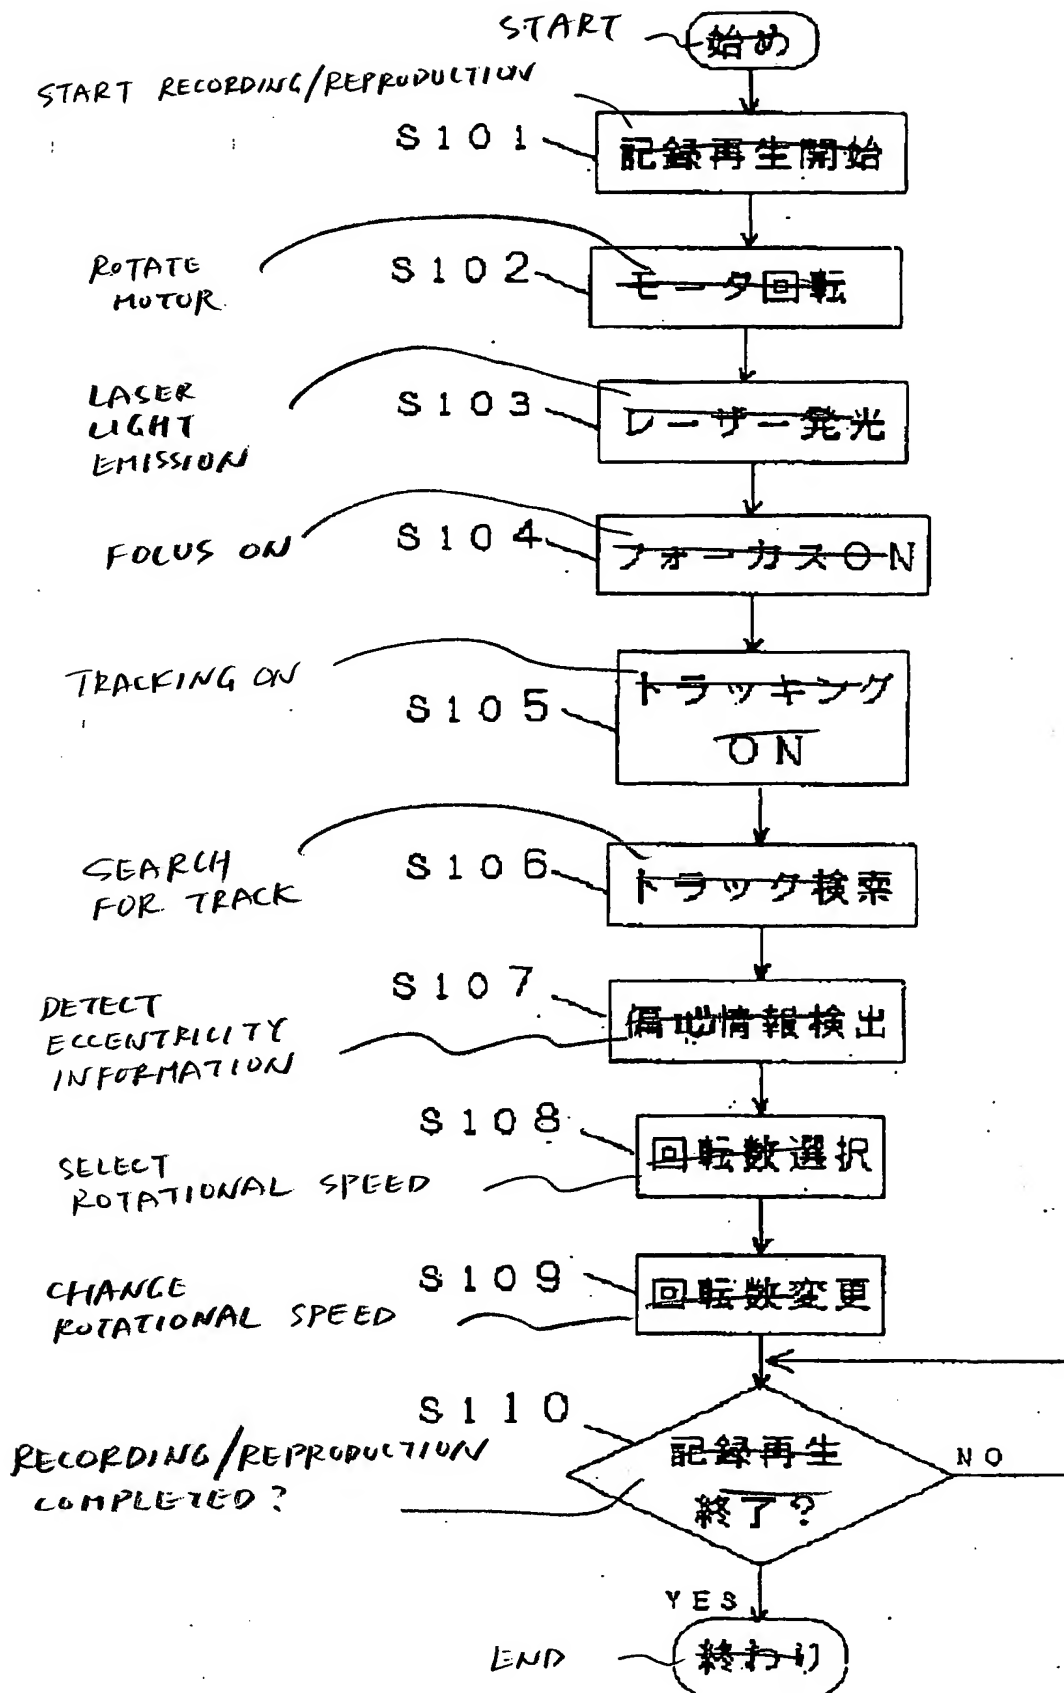 START
始め
START RECORDING/REPRODUCTION
S101
記録再生開始
ROTATE
MOTOR
S102
モータ回転
LASER
LIGHT
EMISSION
S103
レーザー発光
FOCUS ON
S104
フォーカスON
TRACKING ON
S105
トラッキング
ON
SEARCH
FOR TRACK
S106
トラック検索
DETECT
ECCENTRICITY
INFORMATION
S107
偏心情報検出
SELECT
ROTATIONAL SPEED
S108
回転数選択
CHANGE
ROTATIONAL SPEED
S109
回転数変更
RECORDING/REPRODUCTION
COMPLETED?
S110
記録再生
終了?
NO
YES
END
終わり